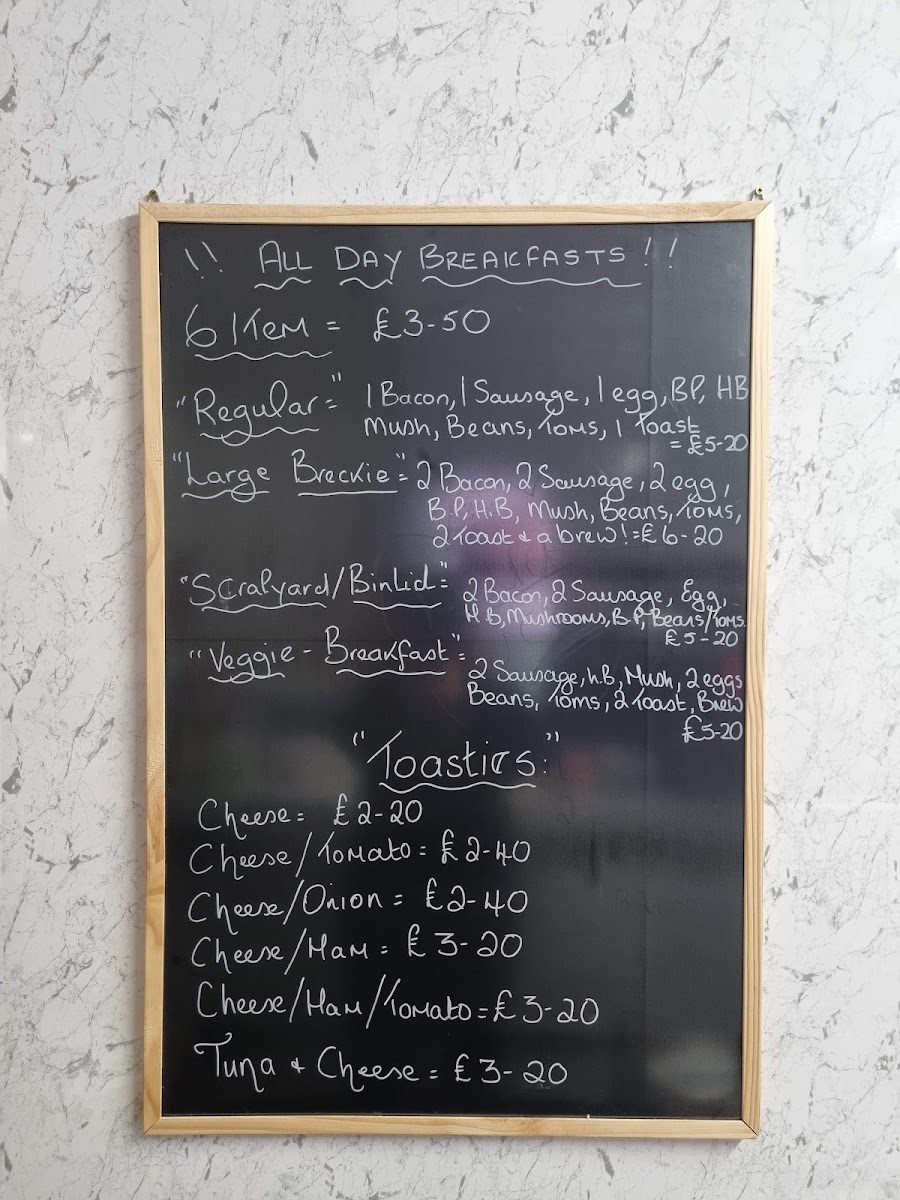 !! ALL DAY BREAKFASTS!!
6 ITEM = £3-50
"Regular=" 1 Bacon, 1 Sausage, 1 egg, BP, HB
Mush, Beans, Toms, 1 Toast
= £5-20
"Large Breckie"= 2 Bacon, 2 Sausage, 2 egg,
B.P, H.B, Mush, Beans, Toms,
2 Toast & a brew! = £6-20
"Scralyard/BinLid=" 2 Bacon, 2 Sausage, Egg,
H.B, Mushrooms, B.P, Beans/Toms.
£5-20
"Veggie - Breakfast"= 2 Sausage, h.B, Mush, 2 eggs
Beans, Toms, 2 Toast, Brew
£5-20
"Toasties:"
Cheese = £2-20
Cheese/Tomato = £2-40
Cheese/Onion = £2-40
Cheese/Ham = £3-20
Cheese/Ham/Tomato = £3-20
Tuna & Cheese = £3-20